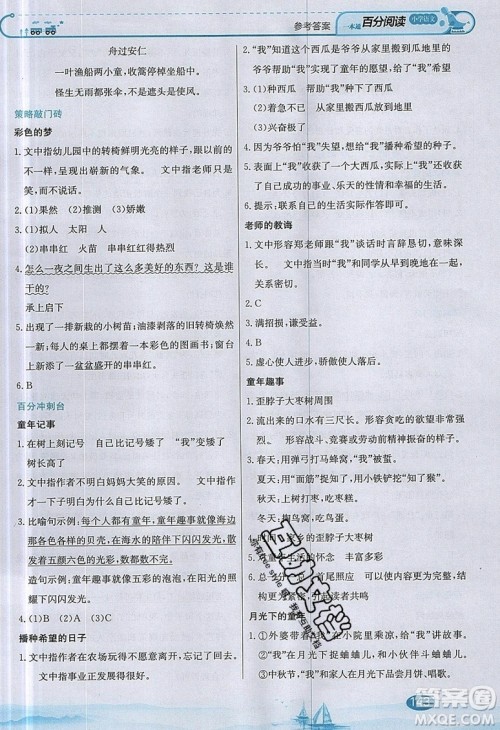 参考答案
一本通 百分阅读 小学语文
舟过安仁
一叶渔船两小童，收篙停棹坐船中。
怪生无雨都张伞，不是遮头是使风。
策略敲门砖
彩色的梦
1. 文中指幼儿园中的转椅鲜明光亮的样子，跟以前
的不一样，呈现出崭新的气象。 文中指老师说自
己的梦实现了，表现“我”的高兴。
2. (1)果然 (2)推测 (3)娇嫩
3. (1)拟人 太阳 人
(2)串串红 火苗 串串红 串串红
4. 怎么一夜之间生出了这么多美好的东西？这是谁
干的呢？
承上启下
5. 出现了一排新栽的小树苗；油漆剥落的旧转椅焕然
一新；四周的木栅栏像一本彩色的图画书；窗台上
新添了一盆盆盛开的串串红。
6. B
百分冲刺台
童年记事
1. 在树上刻记号 发现树上记号矮了 “我”变矮了
树长高了
2. 文中指作者明白妈妈大笑的原因。 文中指作者
因误以为自己变矮而流泪。
3. 比喻句示例：每个人都有童年，童年趣事就像海边
那各色各样的贝壳，在海水的陪伴下闪闪发光，散
发着五颜六色的光彩，数都数不完。
造句示例：童年趣事就像五彩的泡泡，在阳光的照
耀下闪闪发光。
4. (1)B (2)A
播种希望的日子
1. 文中指作者在农场玩得不亦乐乎，没有丝毫睡意。
文中指事业正兴旺发达，蒸蒸日上。
2. “我”知道这个西瓜是爷爷从家里搬到瓜地里的
“我”尽管知道这个西瓜是爷爷从家里搬到瓜地里
的，但“我”依然很高兴
3. (1)西瓜大，从家里搬西瓜到瓜地费劲
(2)兴奋极了
4. 爷爷不想让“我”失望，想为“我”播种希望。
5. 表面上说“我”收获了一个大西瓜，实际上还蕴含了
自己的成功的事业、美满的生活和大大的收获。
6. 提示：联系自己的生活实际，结合生活中感到有希
望的事情来写，根据自己的生活实际作答即可。
老师的教诲
1. 文中形容郑老师和“我”谈话时言辞恳切，内容寓意
深长。 文中指“我”和同学一起去陈老师家里
拜访。
2. C
3. 满招损，谦受益。
4. B
5. 虚心使人进步，骄傲使人落后。
童年趣事
1. 歪脖子大枣树周围
2. 流出来的口水有三尺长。形容贪吃或贪求的欲望
非常强烈。 形容战斗、竞赛或劳动前精神振奋的
样子。
3. 春天：用弯弓打马蜂窝，将柳条拧成哨吹，将满身是
泥的“我”和二宝丢进大缸里，用小铁铲挖“小猴”。
秋天：爬歪脖子大枣树，吃大枣。
冬天：打鸟窝、吃鸟蛋。
5. 总结全文，首尾照应，使文章结构
更加紧凑，引起读者共鸣
月光下的童年
1. ①外婆带着“我”在小院里乘凉，给“我”讲故事。
③中秋节，“我”和家人一起吃月饼、唱歌。
百有文档
答案圈
MXQE.COM